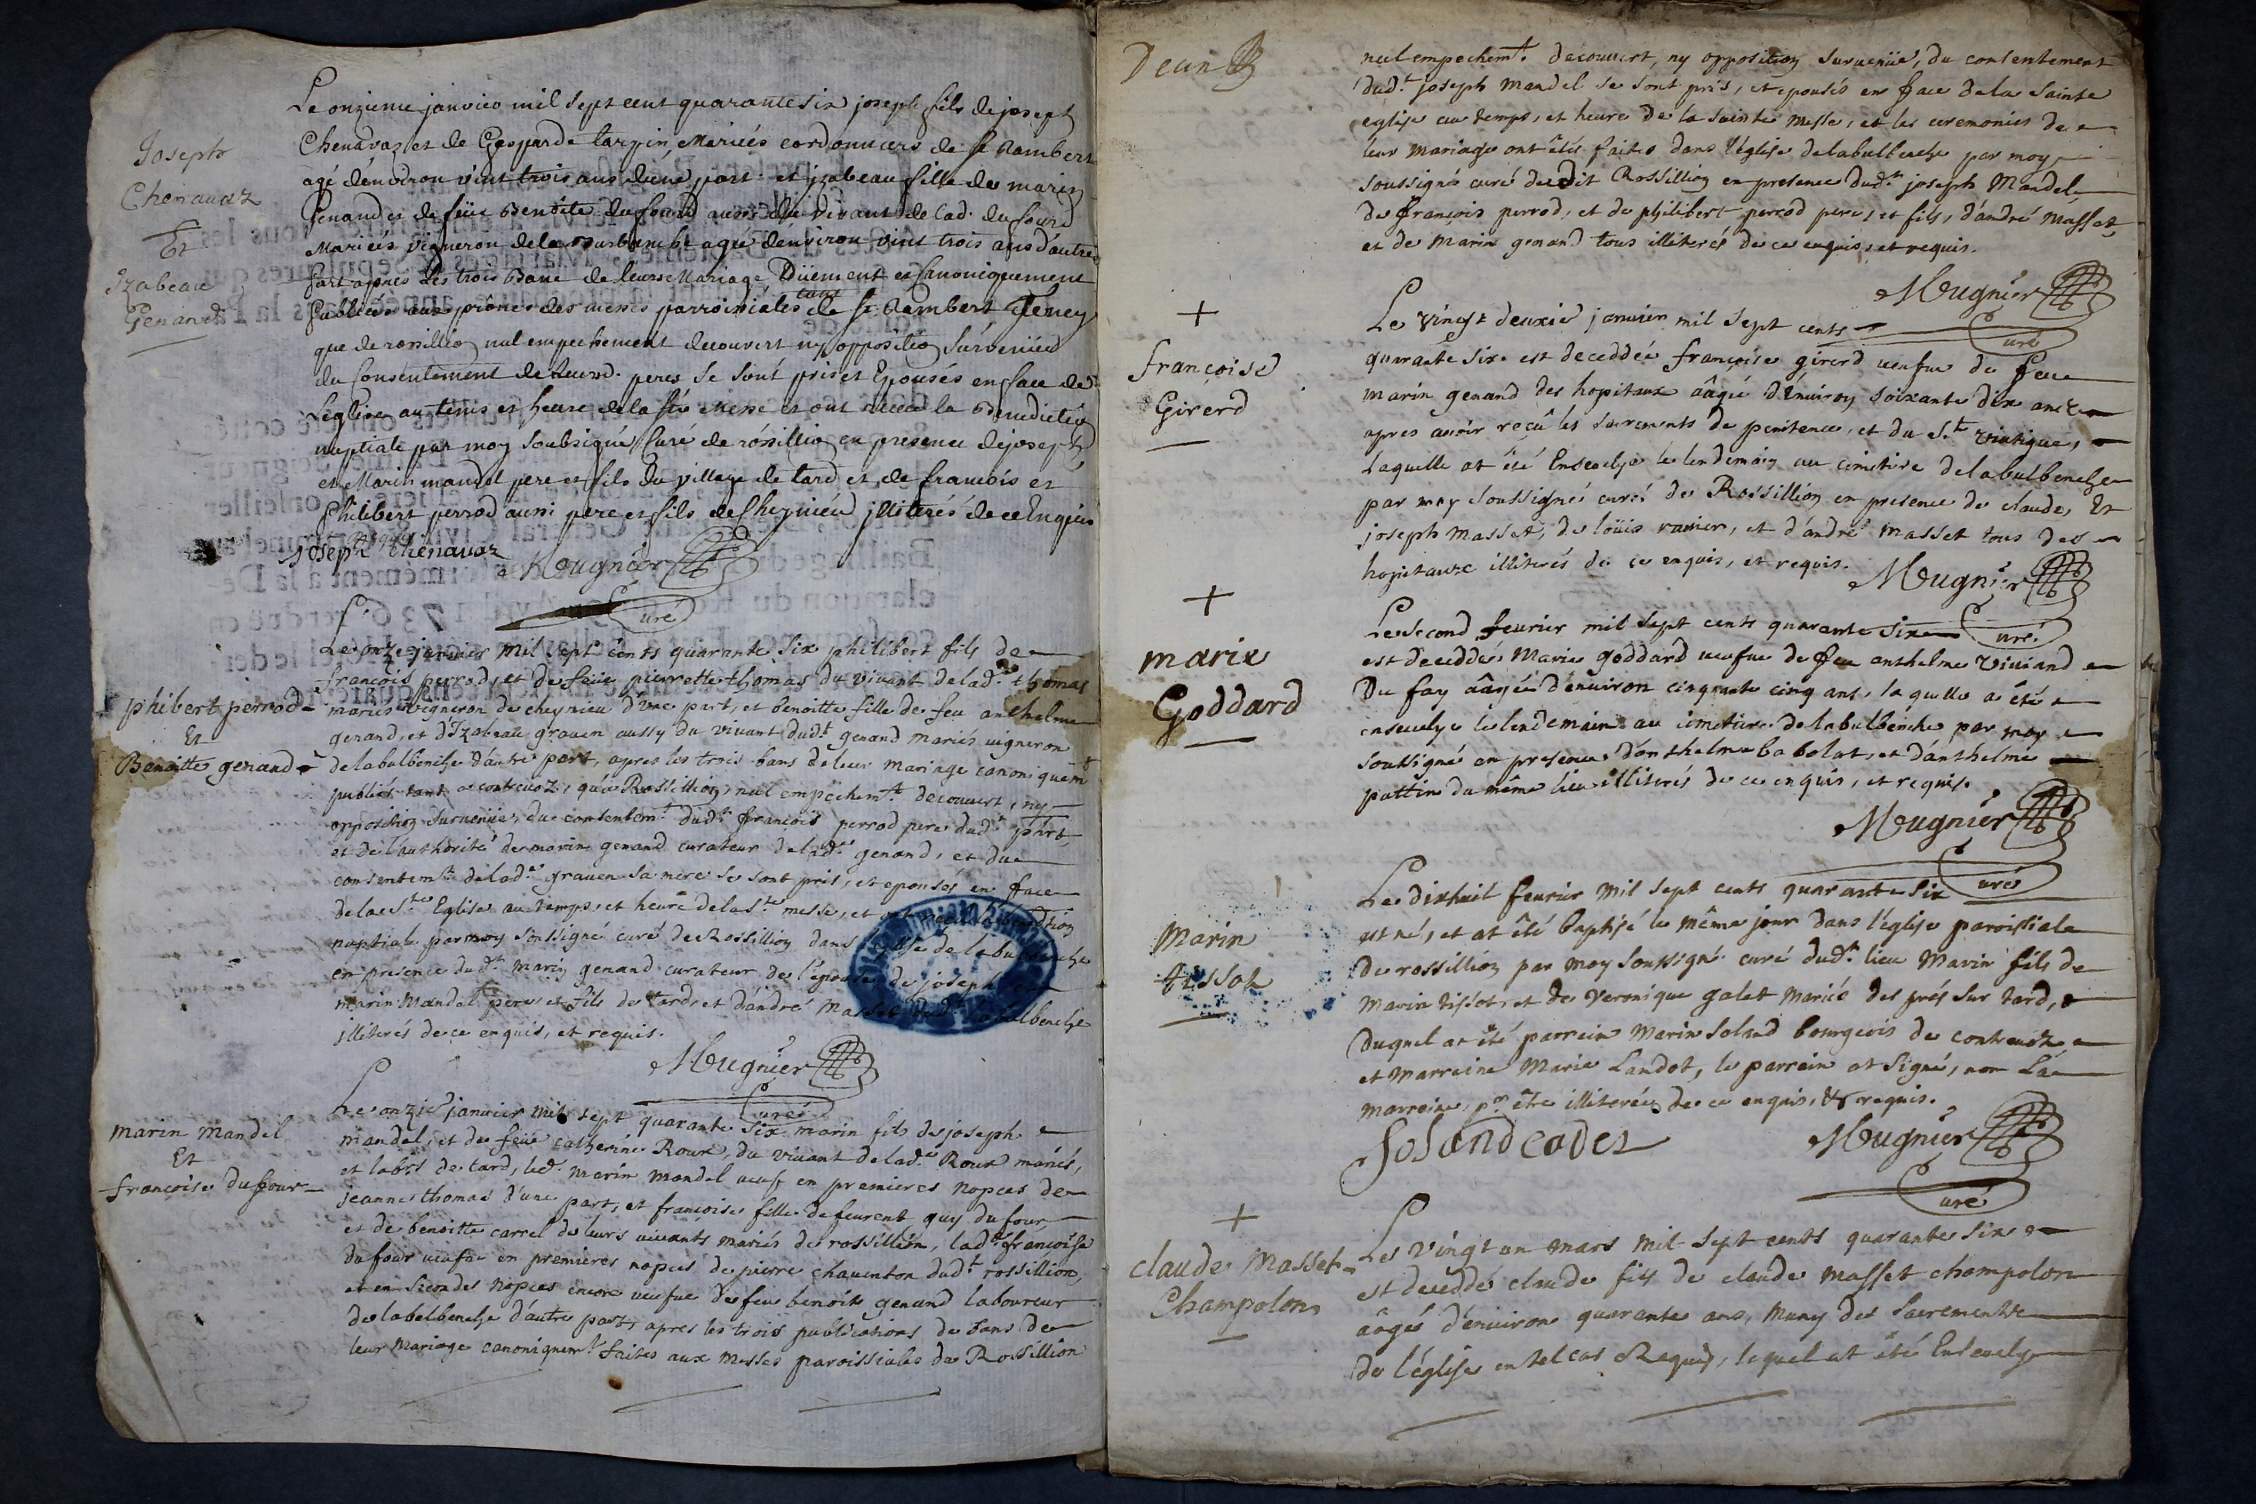 Joseph
Chenavaz
Et
Izabeau
Genand
Le onzieme janvier mil sept cent quarante six joseph fils de joseph
Chenavaz et de Gasparde tarpin Mariés cordonniers de st Rambert
agé d'environ vint trois ans d'une part et izabeau fille de marin
Genand et de füe Benoite dufourd aussi du vivant de lad. dufourd
Mariés vigneron de la agé d'environ vint trois ans d'autre
part apres les trois bans de leurs Mariage Düement et Canoniquement
Publiées aux prônes des messes parroissiales tant de st Rambert Tenay
que de rossillion nul empechement decouvert ny opposition survenüe
du Consentement de leurd. peres se sont pris et Epousés en face de
l'eglise au tems et heure de la ste Messe et ont receu la Benediction
nuptiale par moy soubsigné Curé de rossillion en presence de joseph
et Marin mandel pere et fils du village de tard et de francois et
Philibert perrod aussi pere et fils de Cheynieu illiterés de ce Enquis
joseph Chenavaz Mugnier
Curé
phibert perrod
Et
Benoitte genand
Le onze janvier mil sept cents quarante six philibert fils de
francois perrod, et de feüe pierrette thomas du vivant de lad.e thomas
mariés vigneron de cheynieu d'une part, et benoitte fille de feu anthelme
genand, et d'Izabeau graven aussy du vivant dud.t genand mariés vigneron
de labalbenche d'autre part, apres les trois bans de leur mariage canoniquem.t
publiés tant a contrevoz, qu'a Rossillion, nul empechem.t decouvert, ny
opposition survenüe, du consentem.t dud.t francois perrod pere dud.t part,
et de l'authorité de marin genand curateur de lad.e genand, et du
consentem.t de lad.e graven sa mere se sont pris, et epousés en face
de la S.te Eglise au temps, et heure de la S.te messe, et ont receu la
nuptiale par moy soussigné curé de Rossillion dans l'eglise de labalbenche
en presence dud.t marin genand curateur de l'epouse, de joseph et
marin Mandel pere, et fils de tard, et d'andré Masset dud.t labalbenche
illiterés de ce enquis, et requis.
Mugnier
Curé
marin mandel
Et
francoise dufour
Le onzie janvier mil sept quarante six marin fils de joseph
mandel, et de feüe catherine Roux, du vivant de lad.e Roux mariés,
et labrs de tard, led. marin mandel veuf en premieres nopces de
jeanne thomas d'une part, et francoise fille de feurent guy dufour
et de benoitte carrel de leurs vivants mariés de rossillion, lad.te francoise
dufour veufue en premieres nopces de pierre chaventon dud.t rossillion,
et en secondes nopces encore veufue de feu benoit genand laboureur
de labalbenche d'autre part, apres les trois publications de bans de
leur mariage canoniquem.t faites aux messes paroissiales de Rossillion
nul empechem.t decouvert, ny opposition survenüe, du consentement
dud.t joseph mandel se sont pris, et epousés en face de la sainte
eglise au temps, et heure de la sainte messe, et les ceremonies de
leur mariage ont étés faites dans l'eglise de labalbenche par moy
soussigné curé dudit Rossillion en presence dud.t joseph Mandel,
de françois perrod, et de philibert perrod pere, et fils, d'andré Masset,
et de marin genand tous illiterés de ce enquis, et requis.
Mugnier
Curé
+
françoise
Girerd
Le vingt deuxie janvier mil sept cents
quarante six est deceddée françoise girerd veufue de feu
marin genand des hopitaux aâgée d'environ soixante dix ans
apres avoir reçû les sacrements de penitence, et du S.t viatique,
laquelle at été Ensevelye le lendemain au cimetire de labalbenche
par moy soussigné curé de Rossillion en presence de claude, Et
joseph masset, de loüis ravier, et d'andré masset tous des
hopitaux illiterés de ce enquis, et requis.
Mugnier
Curé
+
marie
Goddard
Le second feurier mil sept cents quarante six
est deceddée Marie goddard veufue de feu anthelme viviand
Du fay aâgée d'environ cinquante cinq ans, laquelle a été
ensevelye le lendemain au cimetire de labalbenche par moy
soussigné en presence d'anthelme babolat, et d'anthelme
pattin du même lieu illiterés de ce enquis, et requis.
Mugnier
Curé
Marin
tissot
Le dixhuit feurier mil sept cents quarante six
est né, et at été baptisé le même jour dans l'église paroissiale
de rossillion par moy soussigné curé dud.t lieu Marin fils de
marin tissot, et de Veronique galet mariés des prés sur tard,
duquel at été parrein Marin soland bourgeois de contrevoz
et marreine Marie Landot, le parrein at signé, non La
marreine, p.r être illiterée, de ce enquis, & requis.
Solandeades Mugnier
Curé
+
claude Masset
Champolon
Le vingt un mars mil sept cents quarante six
est deceddé claude fils de claude masset champolon
aâgé d'environ quarante ans, muny des sacrements
de l'église en tel cas Requis, lequel at été Ensevely